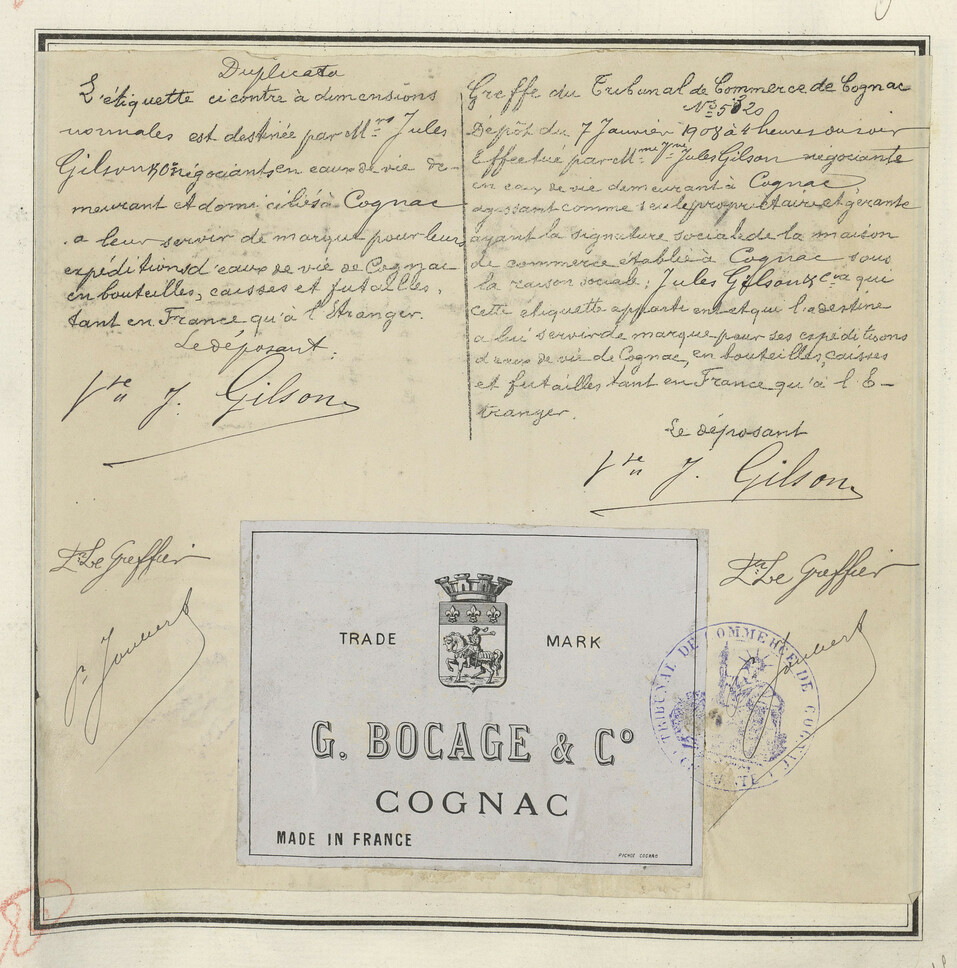 Duplicata
L'étiquette ci contre à dimensions
normales est destinée par Mrs Jules
Gilson & Co négociants en eaux de vie de-
meurant et domiciliés à Cognac
a leur servir de marque pour leurs
expéditions d'eaux de vie de Cognac
en bouteilles, caisses et futailles,
tant en France qu'à l'Etranger.
Le déposant:
Vve J. Gilson
Greffe du Tribunal de Commerce de Cognac
No 5
Dépôt du 7 Janvier 1908 à 4 heures du soir
Effectué par Mme Vve Jules Gilson négociante
en eaux de vie demeurant à Cognac
agissant comme seule propriétaire et gérante
ayant la signature sociale de la maison
de commerce établie à Cognac sous
la raison sociale: Jules Gilson & Cie a qui
cette étiquette appartient et qui l'a destine
a lui servir de marque pour ses expéditions
d'eaux de vie de Cognac, en bouteilles, caisses
et futailles tant en France qu'à l'E-
tranger.
Le déposant
Vve J. Gilson
Le Greffier
Jouvert
Le Greffier
Jouvert
TRADE MARK
G. BOCAGE & Co
COGNAC
MADE IN FRANCE
TRIBUNAL DE COMMERCE DE COGNAC